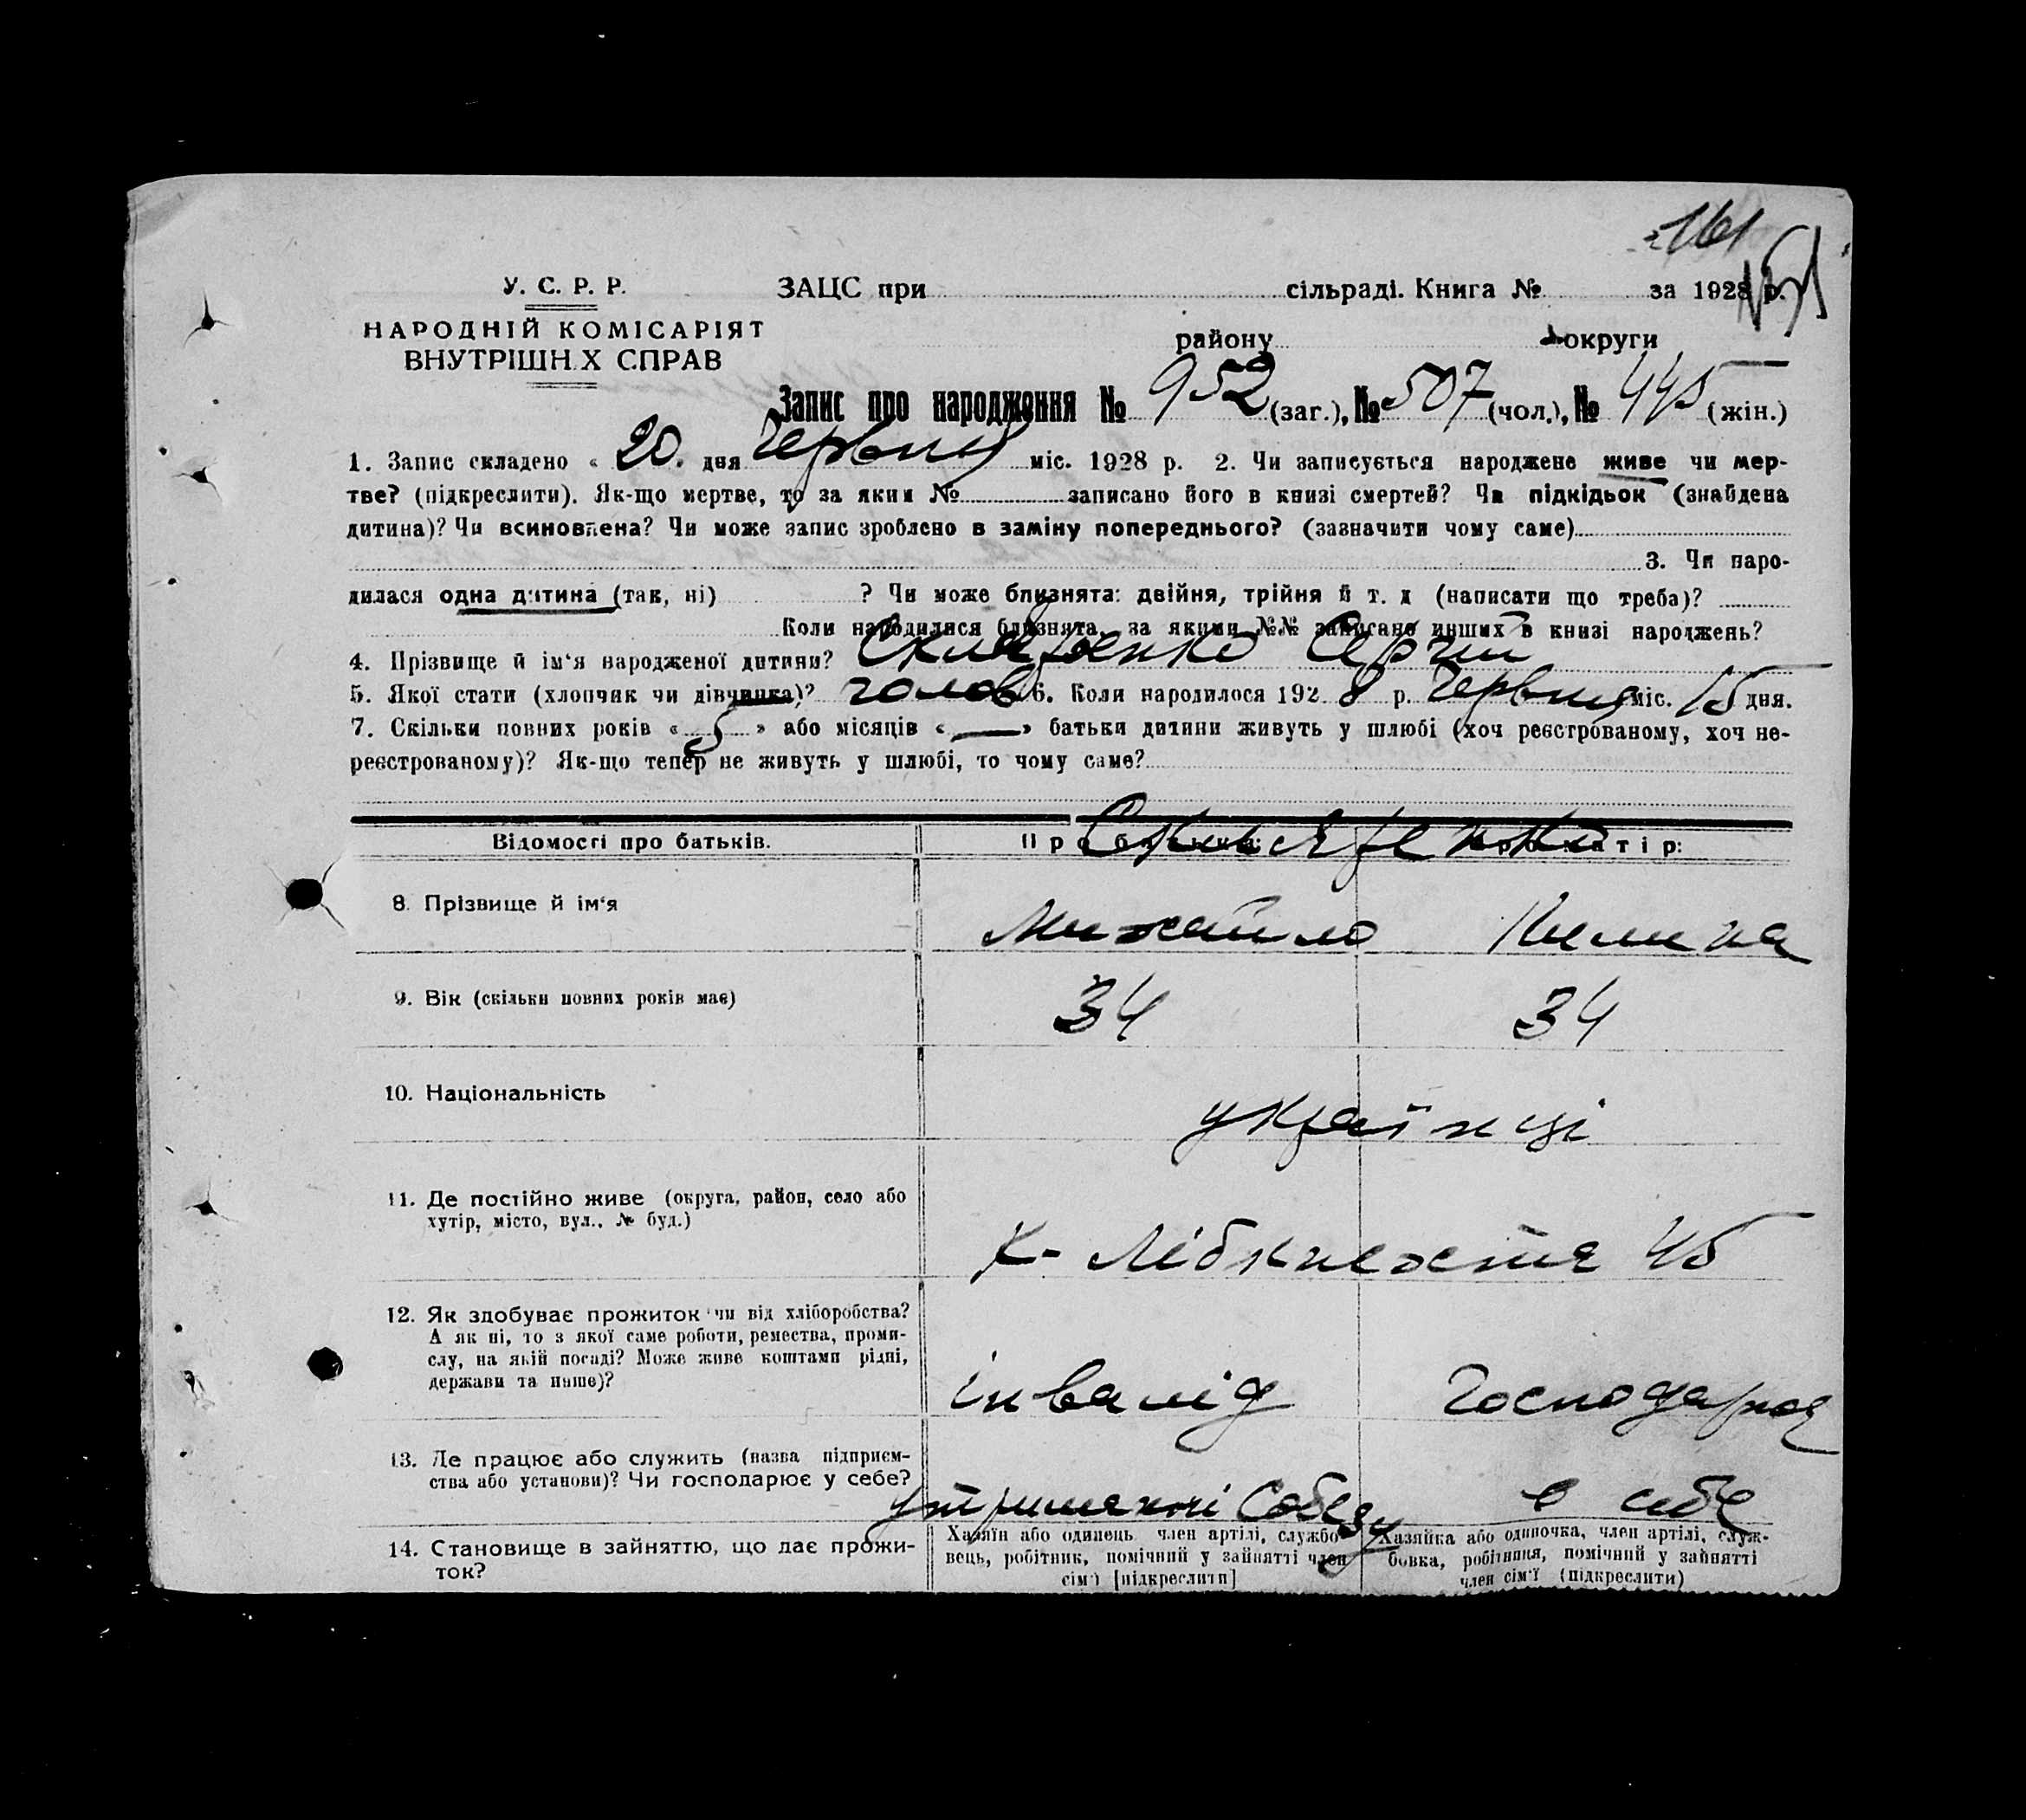 161
У. С. Р. Р.
НАРОДНІЙ КОМІСАРІЯТ
ВНУТРІШН.Х СПРАВ
ЗАЦС при сільраді. Книга № за 1928 р.
району округи
Запис про народження № 952 (заг.), № 507 (чол.), № 445 (жін.)
1. Запис складено « 20 дня Червня міс. 1928 р. 2. Чи записується народжене живе чи мер-
тве? (підкреслити). Як-що мертве, то за яким № записано його в книзі смертей? Чи підкідьок (знайдена
дитина)? Чи всиновлена? Чи може запис зроблено в заміну попереднього? (зазначити чому саме)
3. Чи наро-
дилася одна дитина (так, ні) ? Чи може близнята: двійня, трійня й т. д (написати що треба)?
Коли народилися близнята, за якими №№ записано инших в книзі народжень?
4. Прізвище й ім‘я народженої дитини? Скляренко Сергій
5. Якої стати (хлопчик чи дівчинка)? чолов 6. Коли народилося 1928 р. Червня міс. 15 дня.
7. Скільки повних років « 5 » або місяців « — » батьки дитини живуть у шлюбі (хоч реєстрованому, хоч не-
реєстрованому)? Як-що тепер не живуть у шлюбі, то чому саме?
Відомості про батьків. Про батька: Про матір:
Скляренко
8. Прізвище й ім‘я Михайло
9. Вік (скільки повних років має) 34 34
10. Національність українці
11. Де постійно живе (округа, район, село або
хутір, місто, вул.. № буд.) К- Лібкнехта 45
12. Як здобуває прожиток чи від хліборобства?
А як ні, то з якої саме роботи, ремества, проми-
слу, на якій посаді? Може живе коштами рідні,
держави та инше)? інвалід Господарює
13. Де працює або служить (назва підприєм-
ства або установи)? Чи господарює у себе? утриманні Собезу в себе
14. Становище в зайняттю, що дає прожи-
ток?
Хазяїн або одинець член артілі, службо-
вець, робітник, помічний у зайнятті член
сім‘ї [підкреслити]
Хазяйка або одиночка, член артілі, служ-
бовка, робітниця, помічний у зайнятті
член сім‘ї (підкреслити)